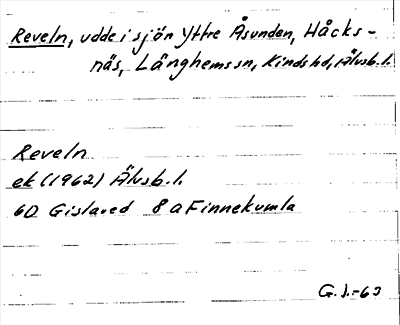 Reveln, udde i sjön Yttre Åsunden, Håcks-
näs, Länghems sn, Kinds hd, Älvsb. l.
Reveln
ek (1962) Älvsb. l.
6D Gislaved 8 a Finnekumla
G. J.-63